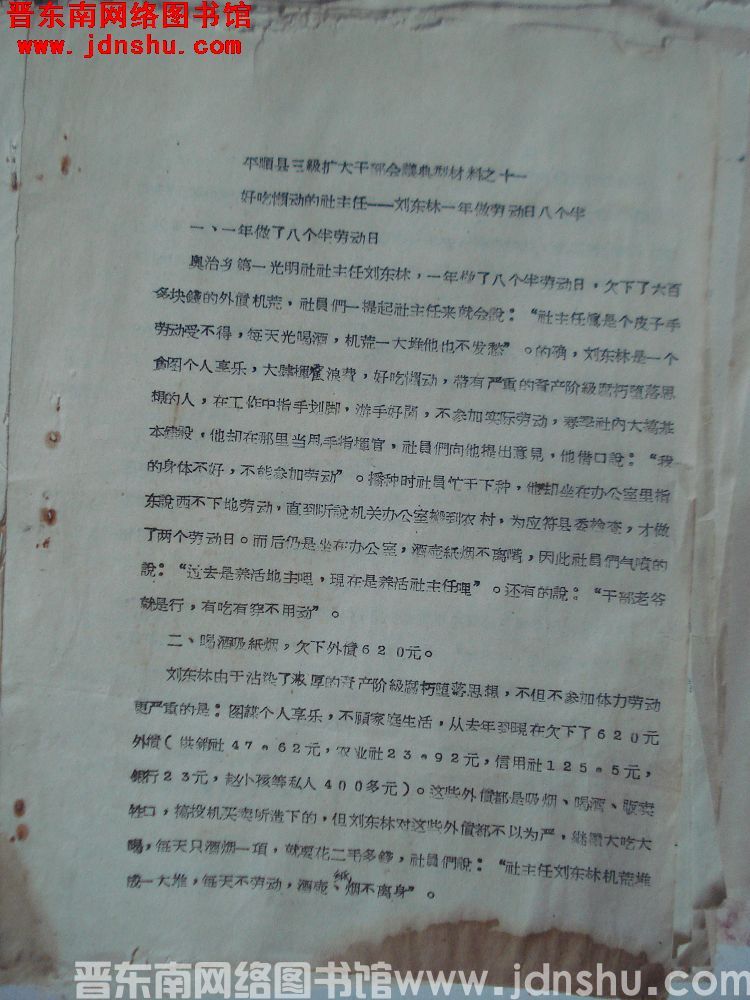 晋东南网络图书馆
www.jdnshu.com
平順县三級扩大干部会議典型材料之十一
好吃懶动的社主任——刘东林一年做劳动日八个半
一、一年做了八个半劳动日
奥治乡第一光明社社主任刘东林，一年做了八个半劳动日，欠下了六百
多块錢的外債机荒，社員們一提起社主任来就会說：“社主任眞是个皮子手
劳动受不得，每天光喝酒，机荒一大堆他也不发愁”。的确，刘东林是一个
贪图个人享乐，大肆揮霍浪費，好吃懶动，带有严重的資产阶級腐朽墮落思
想的人，在工作中指手划脚，游手好閑，不参加实际劳动，春季社內大搞基
本建設，他却在那里当甩手指揮官，社員們向他提出意見，他借口說：“我
的身体不好，不能参加劳动”。播种时社員忙于下种，他却坐在办公室里指
东說西不下地劳动，直到听說机关办公室搬到农村，为应符县委检查，才做
了两个劳动日。而后仍是坐在办公室，酒壶紙烟不离嘴，因此社員們气噴的
說：“过去是养活地主哩，現在是养活社主任哩”。还有的說：“干部老爷
就是行，有吃有穿不用动”。
二、喝酒吸紙烟，欠下外債６２０元。
刘东林由于沾染了浓厚的資产阶級腐朽墮落思想，不但不参加体力劳动
更严重的是：图謀个人享乐，不顧家庭生活，从去年到現在欠下了６２０元
外債（供銷社４７。６２元，农业社２３。９２元，信用社１２５。５元，
銀行２３元，赵小孩等私人４００多元）。这些外債都是吸烟、喝酒、販卖
牲口，搞投机买卖所造下的，但刘东林对这些外債都不以为严，継續大吃大
喝，每天只酒烟一項，就要花二毛多錢，社員們說：“社主任刘东林机荒堆
成一大堆，每天不劳动，酒壶、紙烟不离身”。
晋东南网络图书馆www.jdnshu.com